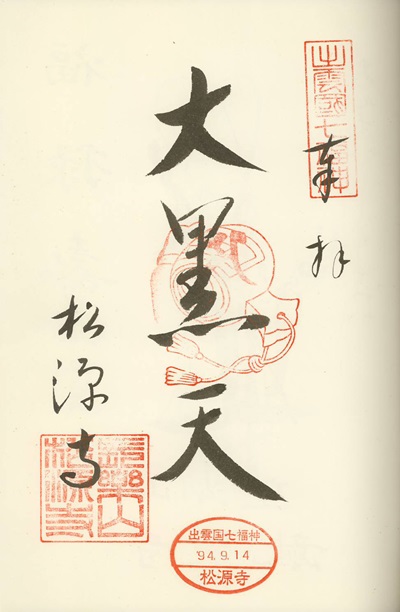 出雲國七福神
奉拝
大黒天
松源寺
松源寺
出雲国七福神
'94.9.14
松源寺